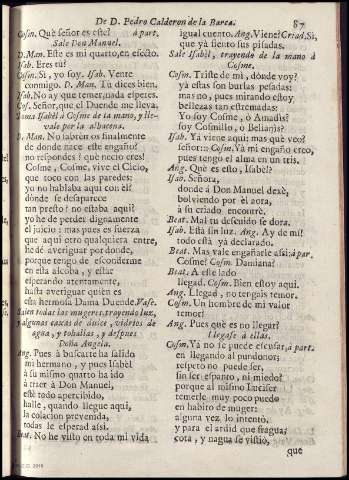 De D. Pedro Calderon de la Barca.
87
Cosm. Què señor es este! à part.
Sale Don Manuel.
D. Man. Este es mi quarto, en efecto.
Isab. Eres tù?
Cosm. Sì, yo soy. Isab. Vente
conmigo. D. Man. Tu dices bien.
Isab. No ay que temer, nada esperes.
Cos. Señor, que el Duende me lleva.
Toma Isabèl à Cosme de la mano, y lle-
vale por la alhacena.
D. Man. No sabrèmos finalmente
de donde nace este engaño?
no respondes? què necio eres!
Cosme, Cosme, vive el Cielo,
que toco con las paredes:
yo no hablaba aqui con èl?
dònde se desaparece
tan presto? no estaba aqui?
yo he de perder dignamente
el juicio; mas pues es fuerza
que aqui otro qualquiera entre,
he de averiguar por donde,
porque tengo de esconderme
en esta alcoba, y estàr
esperando atentamente,
hasta averiguar quièn es
esta hermosa Dama Duende. Vase.
Salen todas las mugeres, trayendo luz,
y algunas caxas de dulce, vidrios de
agua, y tohallas, y despues
Doña Angela.
Ang. Pues à buscarte ha salido
mi hermano, y pues Isabèl
à su mismo quarto ha ido
à traer à Don Manuel,
estè todo apercibido,
halle, quando llegue aqui,
la colacion prevenida,
todas le esperad assi.
Beat. No he visto en toda mi vida
igual cuento. Ang. Viene? Criad. Sì,
que yà siento sus pisadas.
Sale Isabèl, trayendo de la mano à
Cosme.
Cosm. Triste de mi, dònde voy?
yà estas son burlas pesadas:
mas no, pues mirando estoy
bellezas tan estremadas:
Yo soy Cosme, ò Amadìs?
soy Cosmillo, ò Belianìs?
Isab. Yà viene aqui; mas què veo?
señor:: Cosm. Yà mi engaño creo,
pues tengo el alma en un tris.
Ang. Què es esto, Isabèl?
Isab. Señora,
donde à Don Manuel dexè,
bolviendo por èl aora,
à su criado encontrè.
Beat. Mal tu descuido se dora.
Isab. Està sin luz. Ang. Ay de mi!
todo està yà declarado.
Beat. Mas vale engañarle assi: à par.
Cosme! Cosm. Damiana!
Beat. A este lado
llegad. Cosm. Bien estoy aqui.
Ang. Llegad, no tengais temor.
Cosm. Un hombre de mi valor
temor!
Ang. Pues què es no llegar?
Llegase à ellas.
Cosm. Yà no se puede escusar, à part.
en llegando al pundonor:
respeto no puede ser,
sin ser espanto, ni miedo?
porque al mismo Lucifer
temerle muy poco puedo
en habito de muger:
alguna vez lo intentò,
y para el ardid que fragua,
cota, y nagua se vistiò,
que